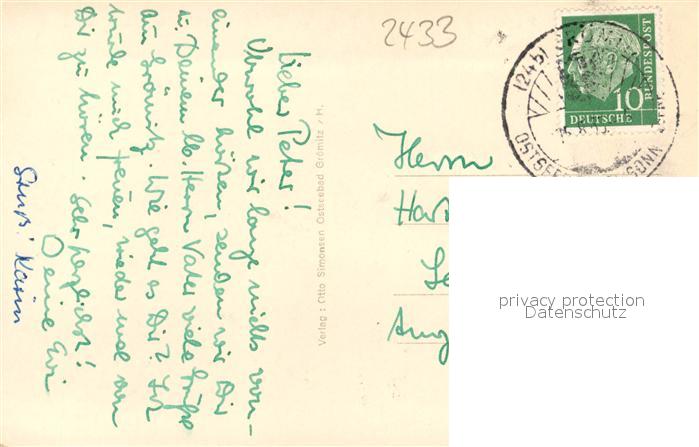 2433
Lieber Peter!
Obwohl wir lange nichts von-
einander hörten, senden wir Dir
u. Deinem lb. Herrn Vater viele Grüße
aus Grömitz. Wie geht es Dir? Ich
würde mich freuen, wieder mal von
Dir zu hören. Sehr herzlichst!
Deine Evi
Gruß! Karin
Verlag: Otto Simonsen Ostseebad Grömitz / H.
(24b)
OSTSEE
10
DEUTSCHE
BUNDESPOST
Herrn
privacy protection
Datenschutz